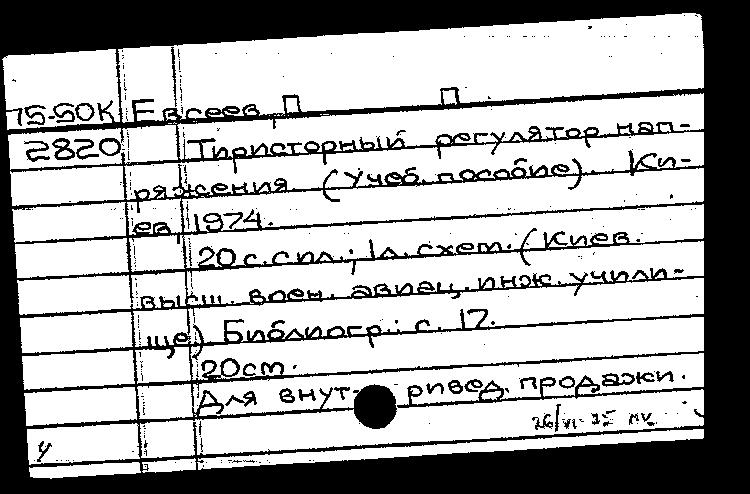 75-50К Евсеев, П П.
2820 Тиристорный регулятор нап-
ряжения. (Учеб. пособие). Ки-
ев, 1974.
20 с. с ил.; 1 л. схем. (Киев.
высш. воен. авиац. инж. учили-
ще). Библиогр.: с. 17.
20см.
Для внут- ривед. продажи.
26/VI-75